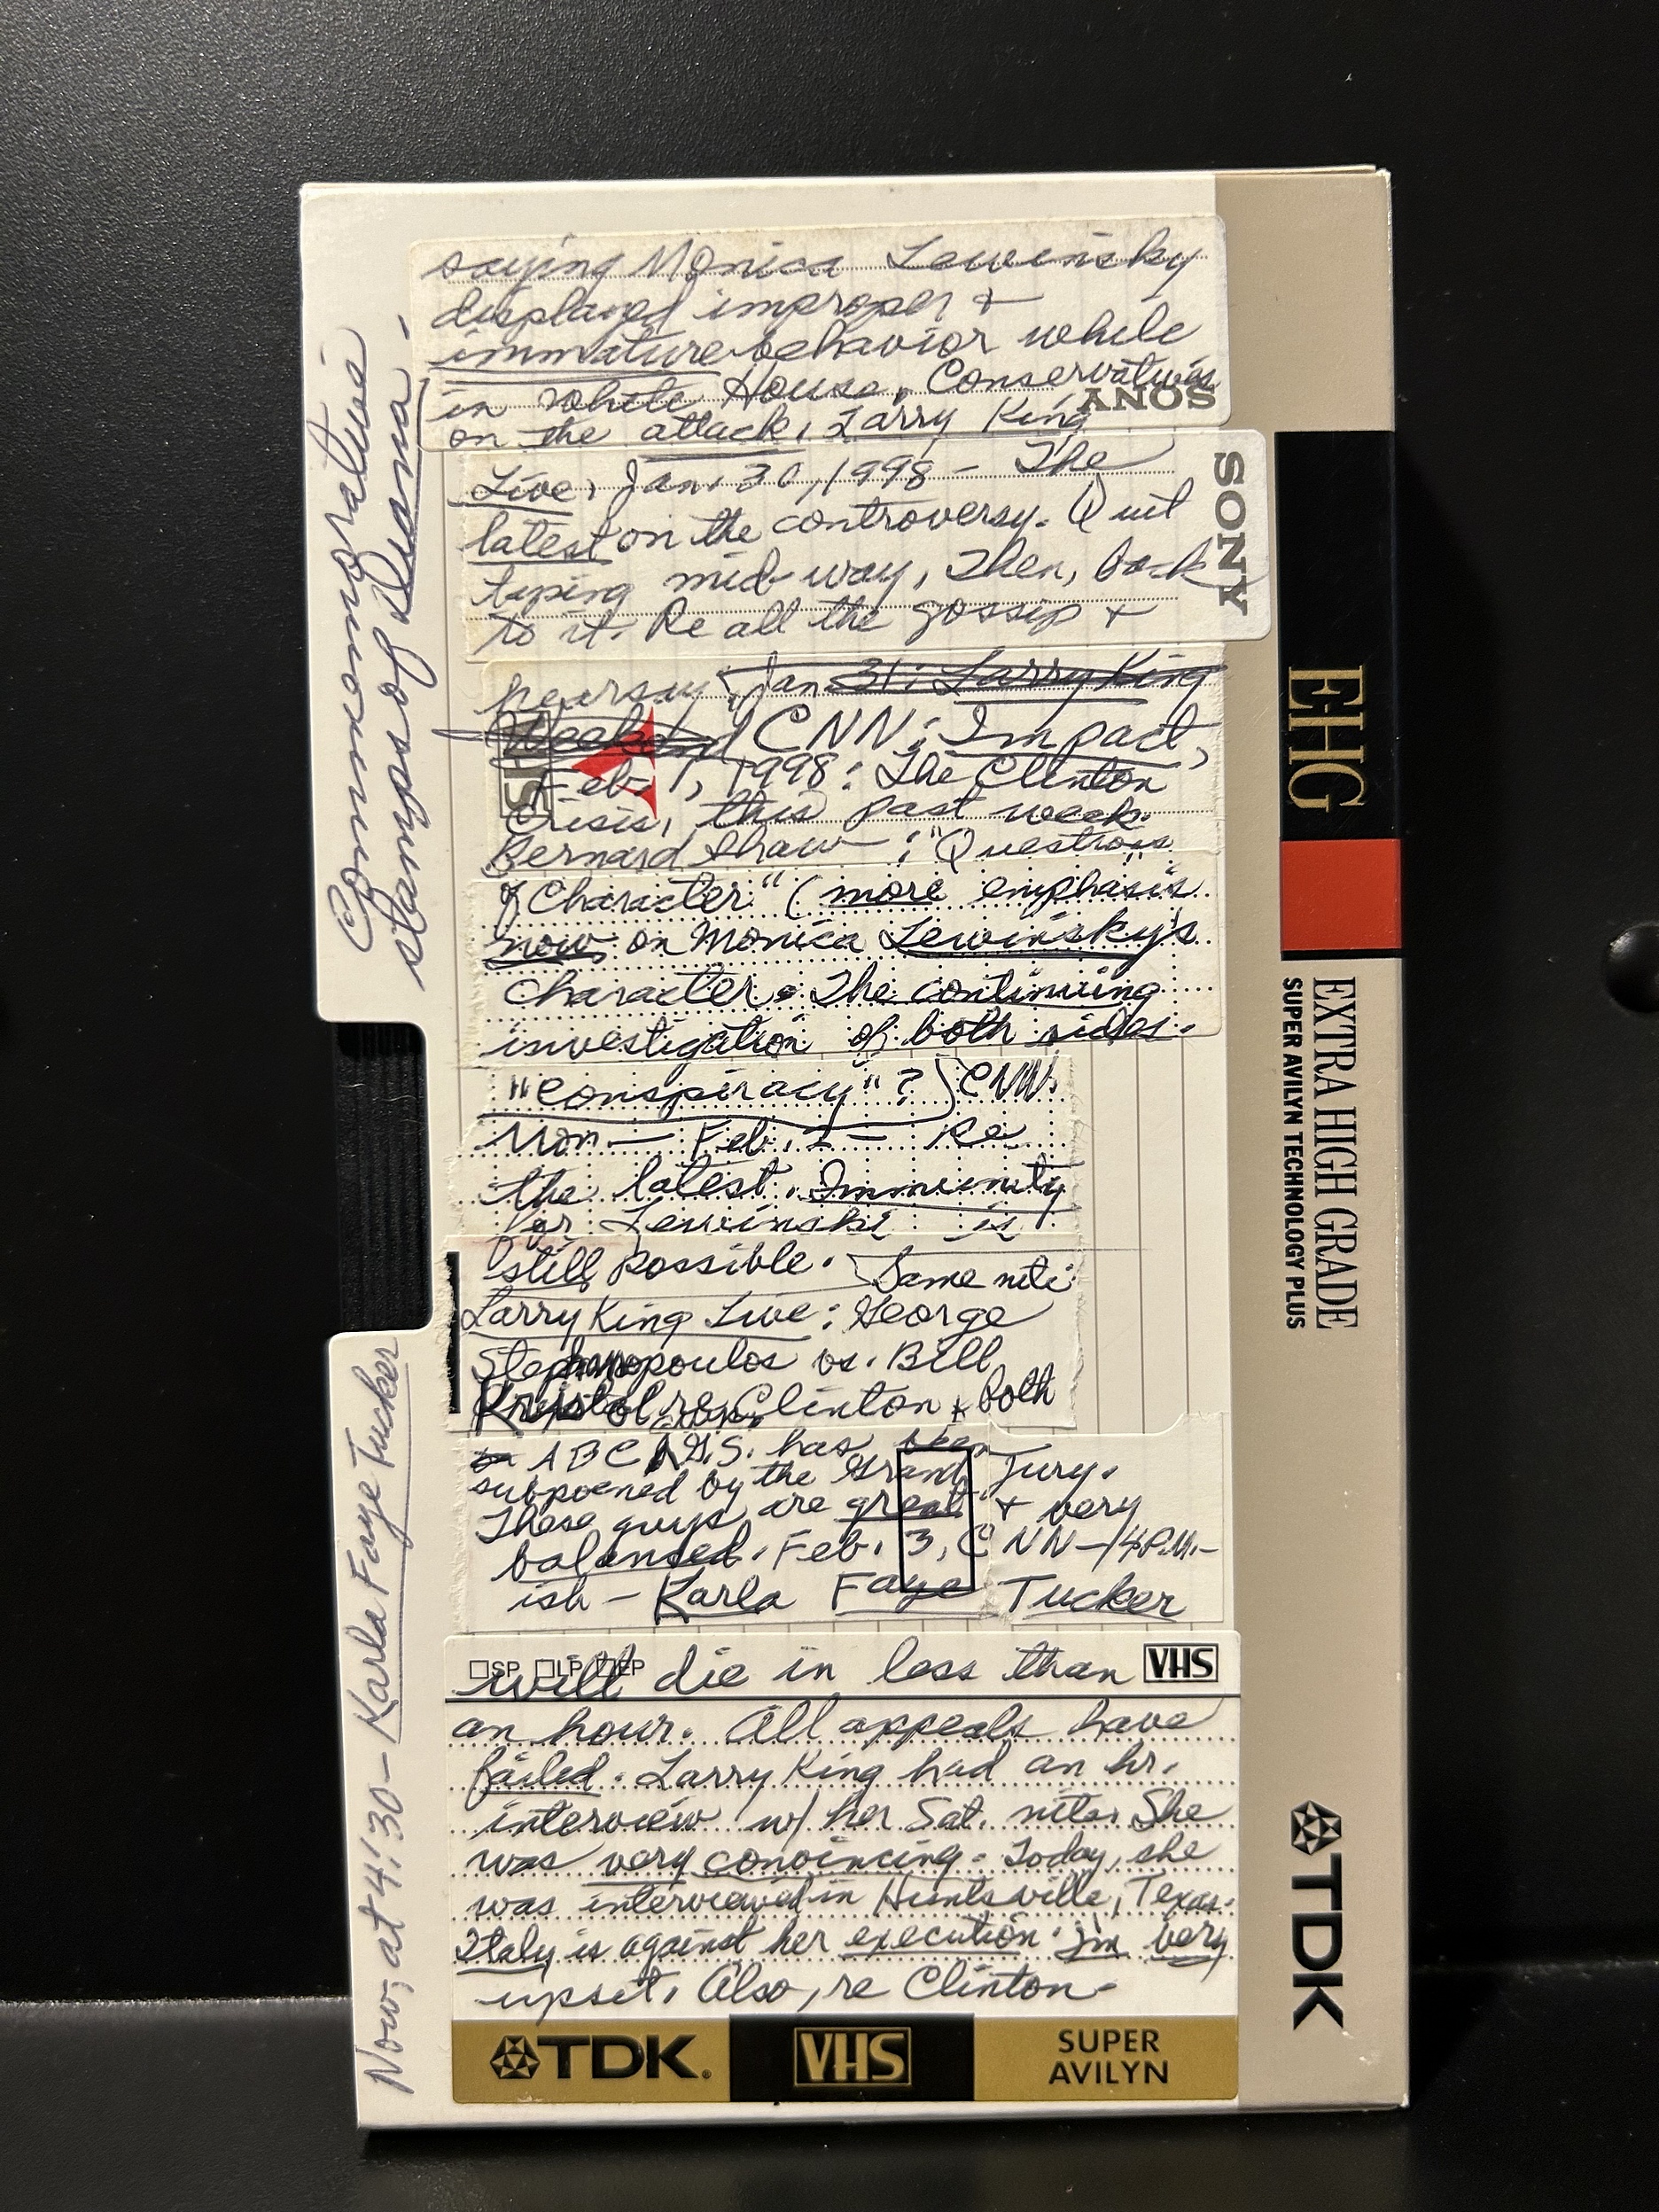 saying Monica Lewinsky
displayed improper +
immature behavior while
in White House. Conservatives
SONY
on the attack. Larry King
Live, Jan. 30, 1998 - The
latest on the controversy. Quit
taping mid-way, Then, back
to it. Re all the gossip +
SONY
hearsay. Jan 31: Larry King
Weekend CNN: Impact,
Feb. 1, 1998: The Clinton
Crisis, this past week.
Bernard Shaw - : "Questions
of Character" (more emphasis
now on Monica Lewinsky's
Character. The continuing
investigation of both sides.
"Conspiracy"?) CNN
Mon - Feb. 2 - Re
the latest. Immunity
for Lewinski is
still possible. Same nite
Larry King Live: George
Stephanopoulos vs. Bill
Kristol re Clinton * Both
ABC G.S. has been
subpoened by the Grand Jury.
These guys are great + very
balanced. Feb. 3, CNN - 4 P.M.-
ish - Karla Faye Tucker
SP LP EP VHS
will die in less than
an hour. All appeals have
failed. Larry King had an hr.
interview w/ her Sat. nite. She
was very convincing. Today, she
was interviewed in Huntsville, Texas.
Italy is against her execution. I'm very
upset. Also, re Clinton-
TDK. VHS SUPER
AVILYN
Commemorative
stamps of Diana.
Now, at 4:30 - Karla Faye Tucker
EHG
EXTRA HIGH GRADE
SUPER AVILYN TECHNOLOGY PLUS
TDK